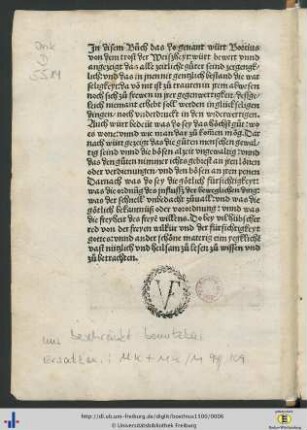 In disem Buch das do genant würt Boetius
von dem trost der Weißheyt würt bewert vnnd
angezeigt das alle zeitliche güter seind zergengk-
lich: vnd das in jnen nit gentzlich bestand die war
seligkeyt: da vō nit ist zu trauren jrem abwesen
noch sich zu frewen in jrer gegenwertigkeit. desß-
gleich niemant erhebt soll werden in glückseligen
dingen: noch vndertruckt in den widerwertigen.
Auch würt bedeüt was do sey das höchst gut: wo
es won: vnnd wie man dar zu komen mög. Dar
nach würt gezeigt das die guten menschen gewal-
tig seind vnnd die bösen alzeit ongewaltig: vnnd
das den guten nimmer nichts gebrest an jren lönen
oder verdienungen: vnd den bösen an jren penen
Darnach was do sey die götlich fürsichtigkeyt
was die ordnūg des jnflusß des beweglichen ding:
was der schnell vnbedacht zuuall: vnd was die
götlich bekantnüß oder vorordinūg: vnnd was
die freyheit des freyē willens. Do bey vil hübscher
red von der freyen wilkür vnd der fürsichtigkeyt
gottes: vnnd ander schöne materig eim yegklichē
vast nützlich vnd heilsam zu lesen zu wissen vnd
zu betrachten.
VF
http://dl.ub.uni-freiburg.de/diglit/boethius1500/0006
© Universitätsbibliothek Freiburg